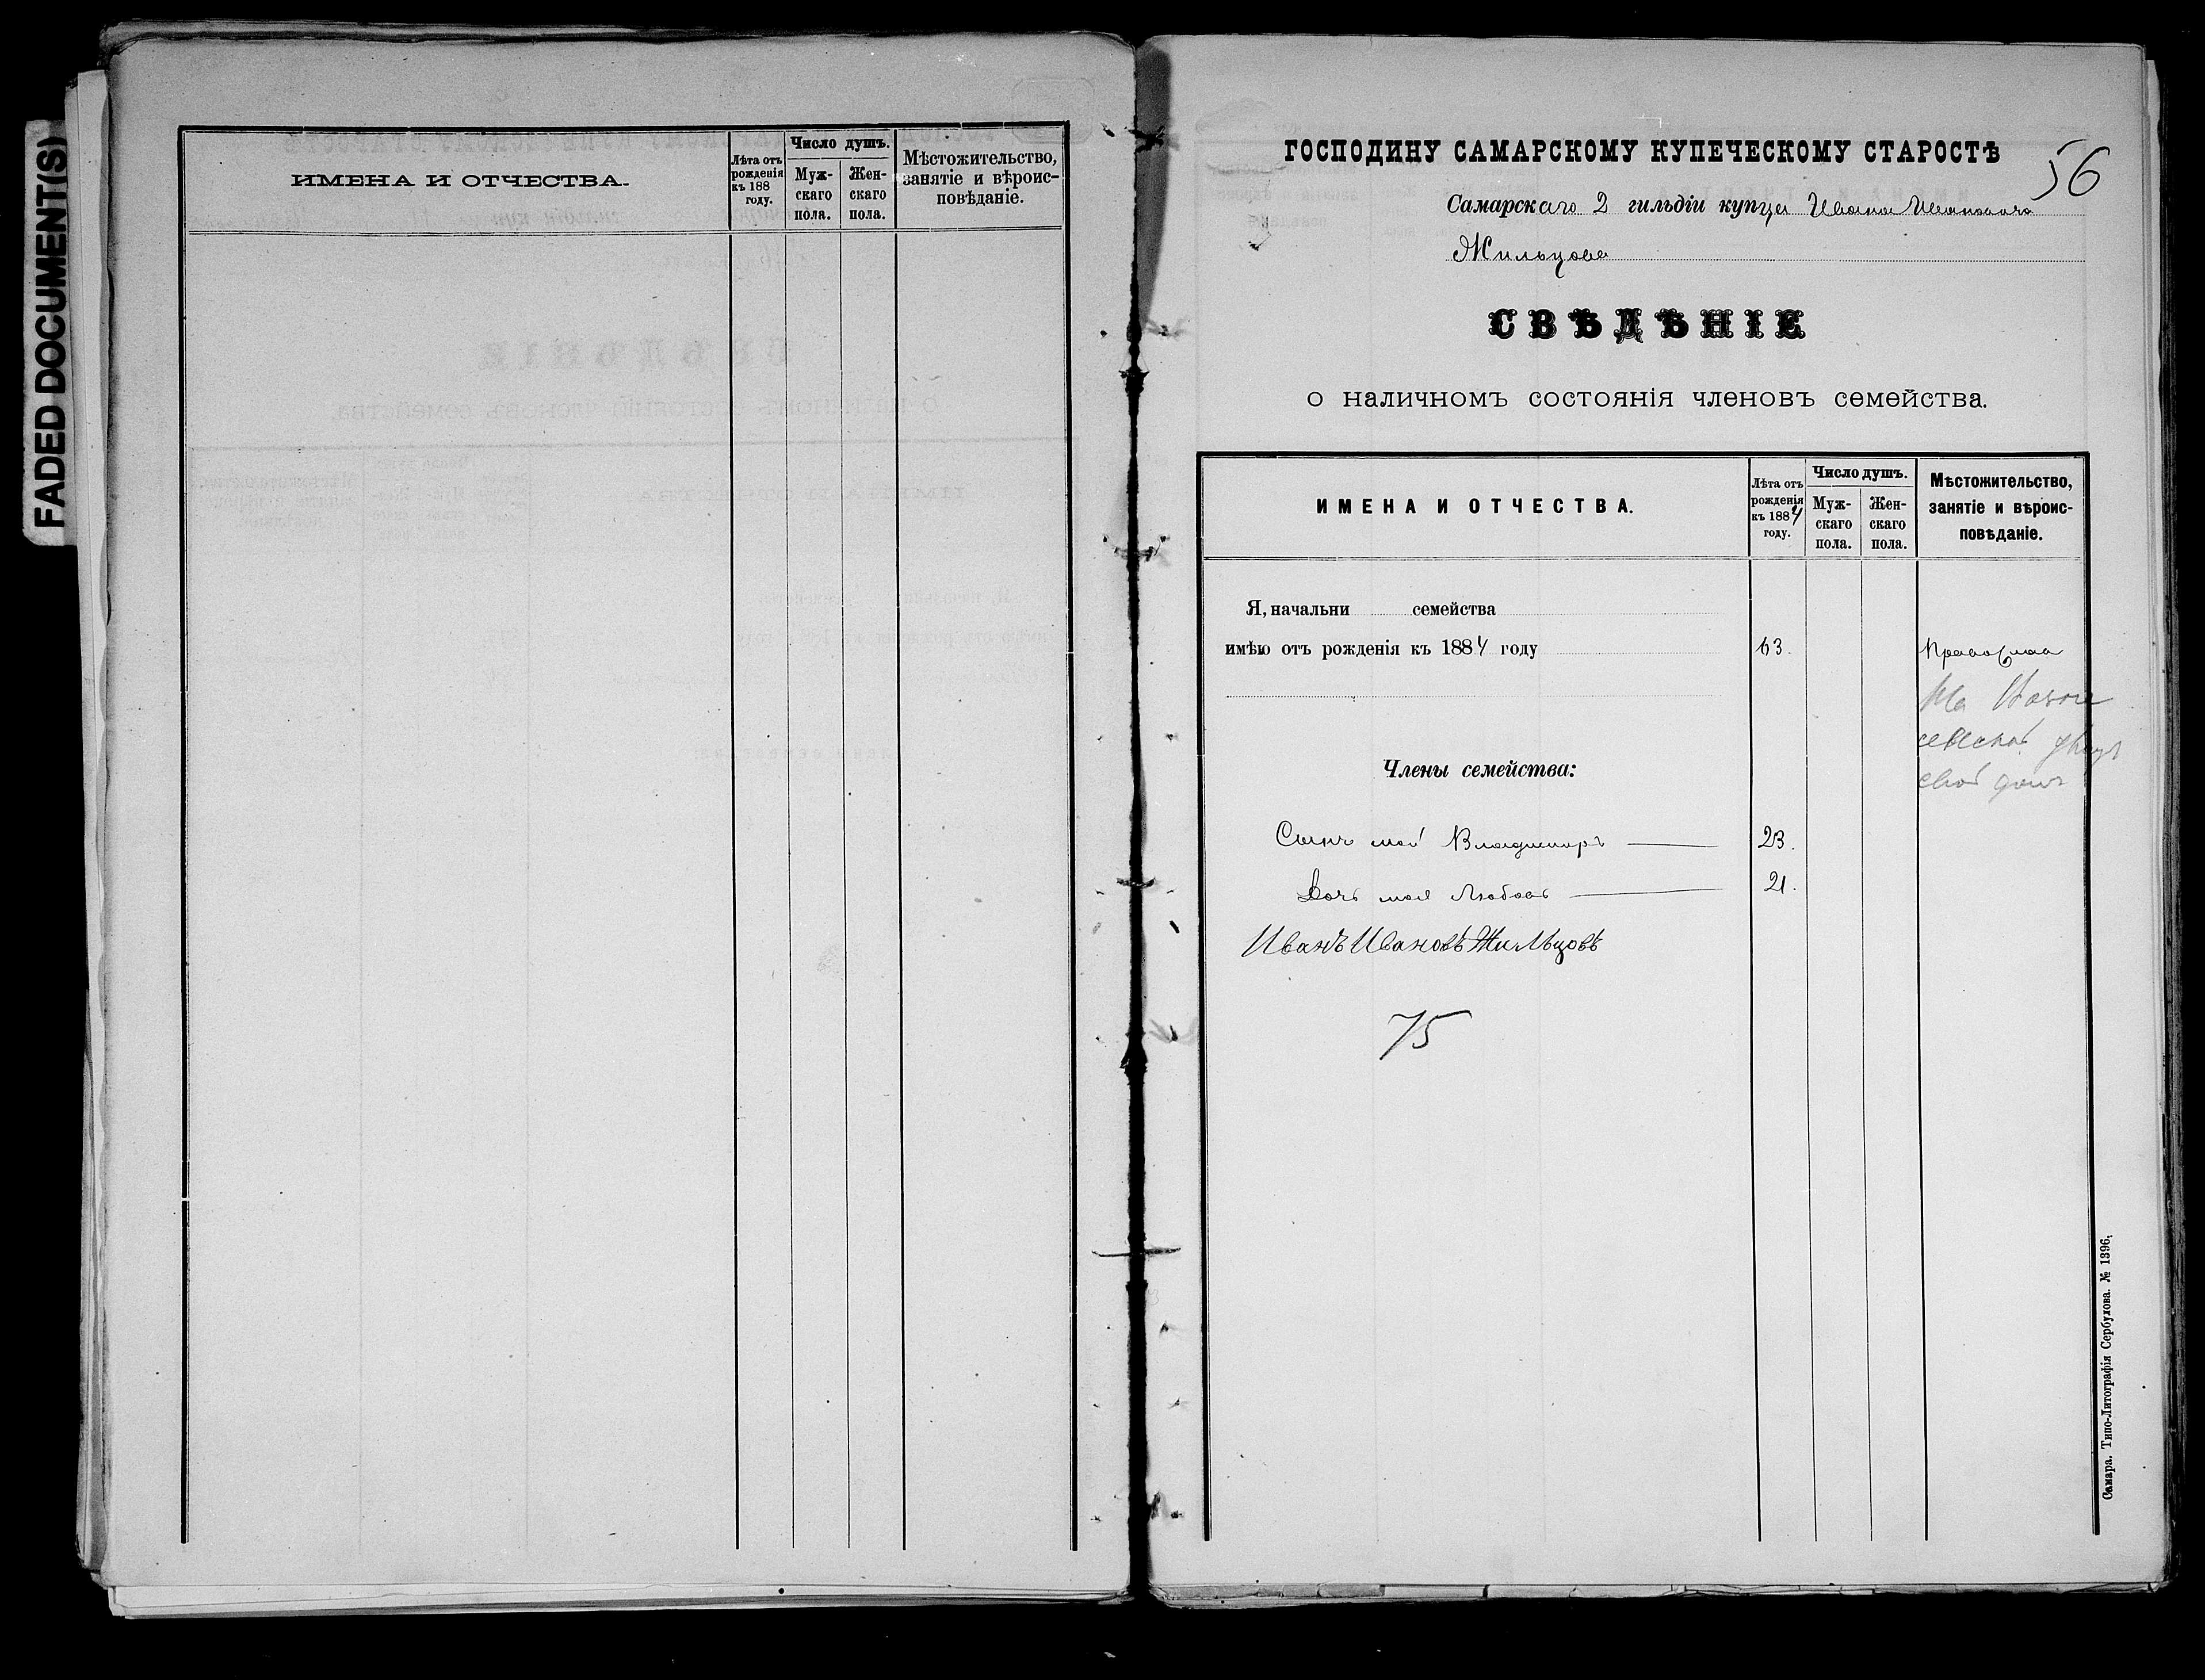 FADED DOCUMENT(S)
ИМЕНА И ОТЧЕСТВА.
Лѣта отъ
рожденія
къ 188
году.
Число душъ.
Муж-
скаго
пола.
Жен-
скаго
пола.
Мѣстожительство,
занятіе и вѣроис-
повѣданіе.
56
ГОСПОДИНУ САМАРСКОМУ КУПЕЧЕСКОМУ СТАРОСТѢ
Самарскаго 2 гильдіи купца Ивана Ивановича
Жильцова
СВѢДѢНІЕ
о наличномъ состоянія членовъ семейства.
ИМЕНА И ОТЧЕСТВА.
Лѣта отъ
рожденія
къ 1884
году.
Число душъ.
Муж-
скаго
пола.
Жен-
скаго
пола.
Мѣстожительство,
занятіе и вѣроис-
повѣданіе.
Я, начальни семейства
имѣю отъ рожденія къ 1884 году 63. Православ
На
свой домъ
Члены семейства:
Сынъ мой Владимиръ 23.
Дочь моя Любовь 21.
Иванъ Ивановъ Жильцовъ
75
Самара. Типо-Литографія Сербулова. № 1396.